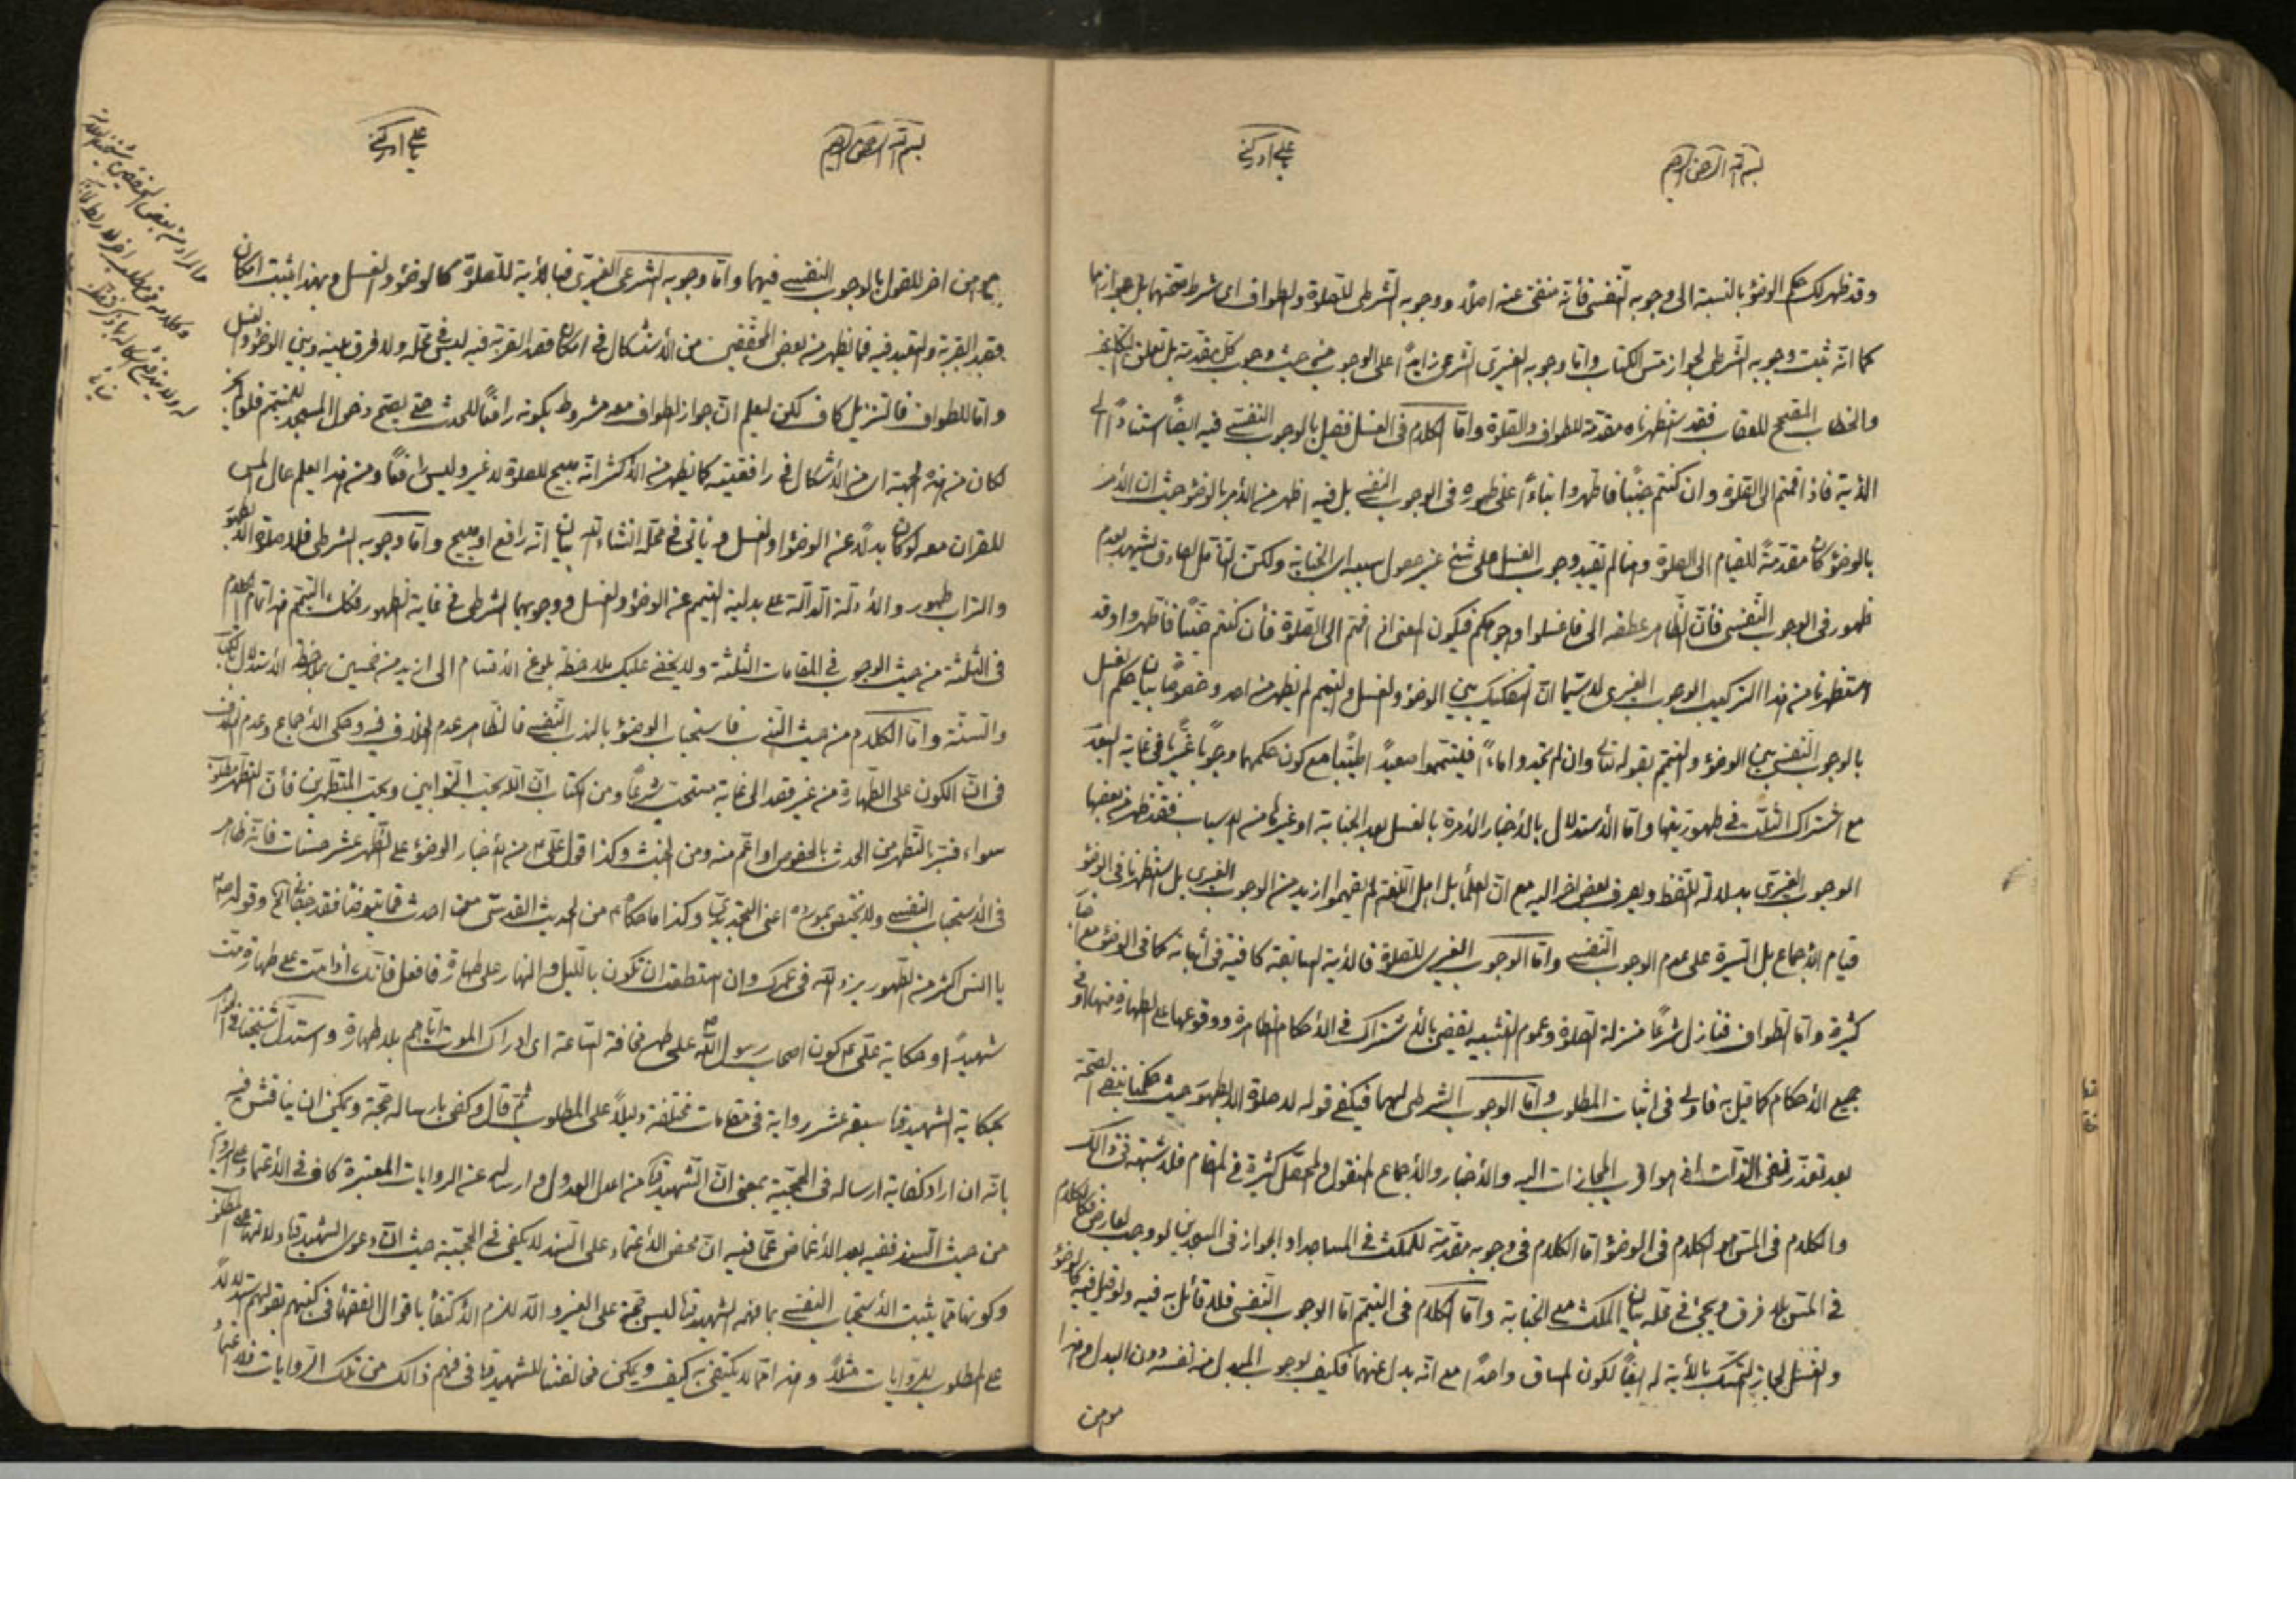 بسم الله الرحمن الرحيم
يا علي ادركني
وقد ظهر لك حكم الوضوء بالنسبة الى وجوبه النفسي فأنه منفي عنه اصلاً ووجوبه الشرطي للصلوة والطواف اى شرط صحتهما بل جوازهما
كما انه ثبت وجوبه الشرطي لجواز مس الكتاب واما وجوبه الغيري الشرعي زايداً على الوجوب من حيث وجوب كل مقدمة بل تعلق
والخطاب المقبح للعقاب فقد استظهرناه مقدمة للطواف والصلوة واما الكلام في الغسل فقيل بالوجوب النفسي فيه ايضاً استناداً الى
الأية فاذا قمتم الى الصلوة وان كنتم جنباً فاطهروا بناءً على ظهوره في الوجوب النفسي بل فيه اظهر من الأمر بالوضوء حيث ان الأمر
بالوضوء كان مقدمةً للقيام الى الصلوة وهنا لم تقيد وجوب الغسل على شئ غير حصول سببه اى الجنابة ولكن التأمل الصادق يشهد بعدم
ظهوره في الوجوب النفسي فأن الظاهر عطفه الى فاغسلوا وجوهكم فيكون المعنى اذا قمتم الى الصلوة فأن كنتم جنباً فاطهروا وقد
استظهرنا من هذا التركيب الوجوب الغيري لا سيما ان التفكيك بين الوضوء والغسل والتيمم لم يظهر من احد وخصوصاً بيان حكم الغسل
بالوجوب النفسي بين الوضوء والتيمم بقوله تعالى وان لم تجدوا ماءً فتيمموا صعيداً طيباً مع كون حكمهما وجوباً غيرياً في غاية البعد
مع اشتراك الثلث في طهوريتها واما الأستدلال بالأخبار الأمرة بالغسل بعد الجنابة او غيرها من الاسباب فقد ظهر من بعضها
الوجوب الغيري بدلالة اللفظ ويصرف بعض اخر اليه مع ان العلماء بل اهل اللغة لم يفهموا ازيد من الوجوب الغيري بل استظهرنا في الوضوء
قيام الأجماع بل السيرة على عدم الوجوب النفسي واما الوجوب الغيري للصلوة فالأية السابقة كافية في أثباته كما في الوضوء مع اخبار
كثيرة واما الطواف فتنازل شرعاً منزلة الصلوة وعموم التشبيه يقضي بالأشتراك في الأحكام الظاهرة ووقوعها على الطهارة منها او في
جميع الأحكام كما قيل به فاولى في اثبات المطلوب واما الوجوب الشرطي لهما فيكفي قوله لا صلوة الا بطهور حيث حكمنا بنفي الصحة
بعد تعذر نفي الذات اذ هو اقرب المجازات اليه والأخبار والأجماع المنقول والمحصل كثيرة في المقام فلا شبهة في ذالك
والكلام في المس هو الكلام في الوضوء اما الكلام في وجوبه مقدمة للمكث في المساجد او الجواز في المسجدين لو وجب لعارض فكالكلام
في المس بلا فرق ويجئ في محله بيان المكث مع الجنابة واما الكلام في التيمم اما الوجوب النفسي فلا قائل به فيه ولو قيل فيه كالوضوء
والغسل لجاز التمسك بالأية له ايضاً لكون المساق واحداً مع انه بدل عنهما فكيف بوجوب المبدل من نفسه دون البدل وهذا
بسم الله الرحمن الرحيم
يا علي ادركني
اخر للقول بالوجوب النفسي فيهما واما وجوبه الشرعي الغيري فبالأية للصلوة كالوضوء والغسل وبهذا يثبت امكان
قصد القربة والتعبد فيه فما يظهر من بعض المحققين من الأستشكال في امكان قصد القربة فيه ليس في محله ولا فرق بينه وبين الوضوء والغسل
واما للطواف فالتنزيل كاف لكن ليعلم ان جواز الطواف معه مشروط بكونه رافعاً للحدث حتى يصح دخول المسجد للمتيمم فلو
لكان من هذه الجهة اى من الأشكال في رافعيته كما يظهر من الأكثر انه مبيح للصلوة لا غير وليس رافعاً ومن هذا يعلم حال لمس
للقران معه لو كان بدلاً عن الوضوء او الغسل ويأتي في محله انشاء الله بيان انه رافع او مبيح واما وجوبه الشرطي فلا صلوة الا بطهور
والتراب طهور والأدلة الدالة على بدلية التيمم عن الوضوء والغسل ووجوبهما الشرطي في غاية الظهور فكذلك التيمم هذا تمام الكلام
في الثلثة من حيث الوجوب في المقامات الثلثة ولا يخفى عليك بملاحظة بلوغ الأقسام الى ازيد من خمسين بملاحظة الأستدلال بالكتاب
والسنة واما الكلام من حيث الندب فاستحباب الوضوء بالندب النفسي فالظاهر عدم الخلاف فيه وحكى الأجماع وعدم الخلاف
في ان الكون على الطهارة من غير قصد الى غاية مستحب شرعاً ومن الكتاب ان الله يحب التوابين ويحب المتطهرين فأن التطهر مطلق
سواء فسر بالتطهر من الحدث بالخصوص او اعم منه ومن الخبث وكذا قول علي ع من الأخبار الوضوء على الطهر عشر حسنات فأنه ظاهر
في الأستحباب النفسي ولا يختص بمورده اعني التجديدي وكذا ما حكاه من الحديث القدسي من احدث فما يتوضأ فقد جفاني الخ وقوله ص
يا انس اكثر من الطهور يزد الله في عمرك وان استطعت ان تكون بالليل والنهار على طهارة فافعل فأنك اذا مت على طهارة مت
شهيداً او حكاية علي ع كون اصحاب رسول الله ص على طهر مخافة الساعة اى ادراك الموت اياهم بلا طهارة واستدل شيخنا في الجواهر
بحكاية الشهيد سبعة عشر رواية في مقامات مختلفة دليلاً على المطلوب ثم قال وكفى بارساله حجة ويمكن ان يناقش فيه
بانه ان اراد كفاية ارساله في الحجية بمعنى ان الشهيد من اعدل العدول وارساله عن الروايات المعتبرة كاف في الأعتماد على
من حيث السند ففيه بعد الأغماض عما فيه ان محض الأعتماد على السند لا يكفي في الحجية حيث ان دعوى الشهيد دلالتها على المطلوب
وكونها مما يثبت الأستحباب النفسي بما فهمه الشهيد ليس حجة على الغير والا للزم الأكتفاء باقوال الفقهاء في كتبهم بقولهم استدلالاً
على المطلوب للروايات مثلاً وهذا مما لا يكتفى به كيف ويمكن مخالفتنا للشهيد في فهم ذالك من تلك الروايات فلا